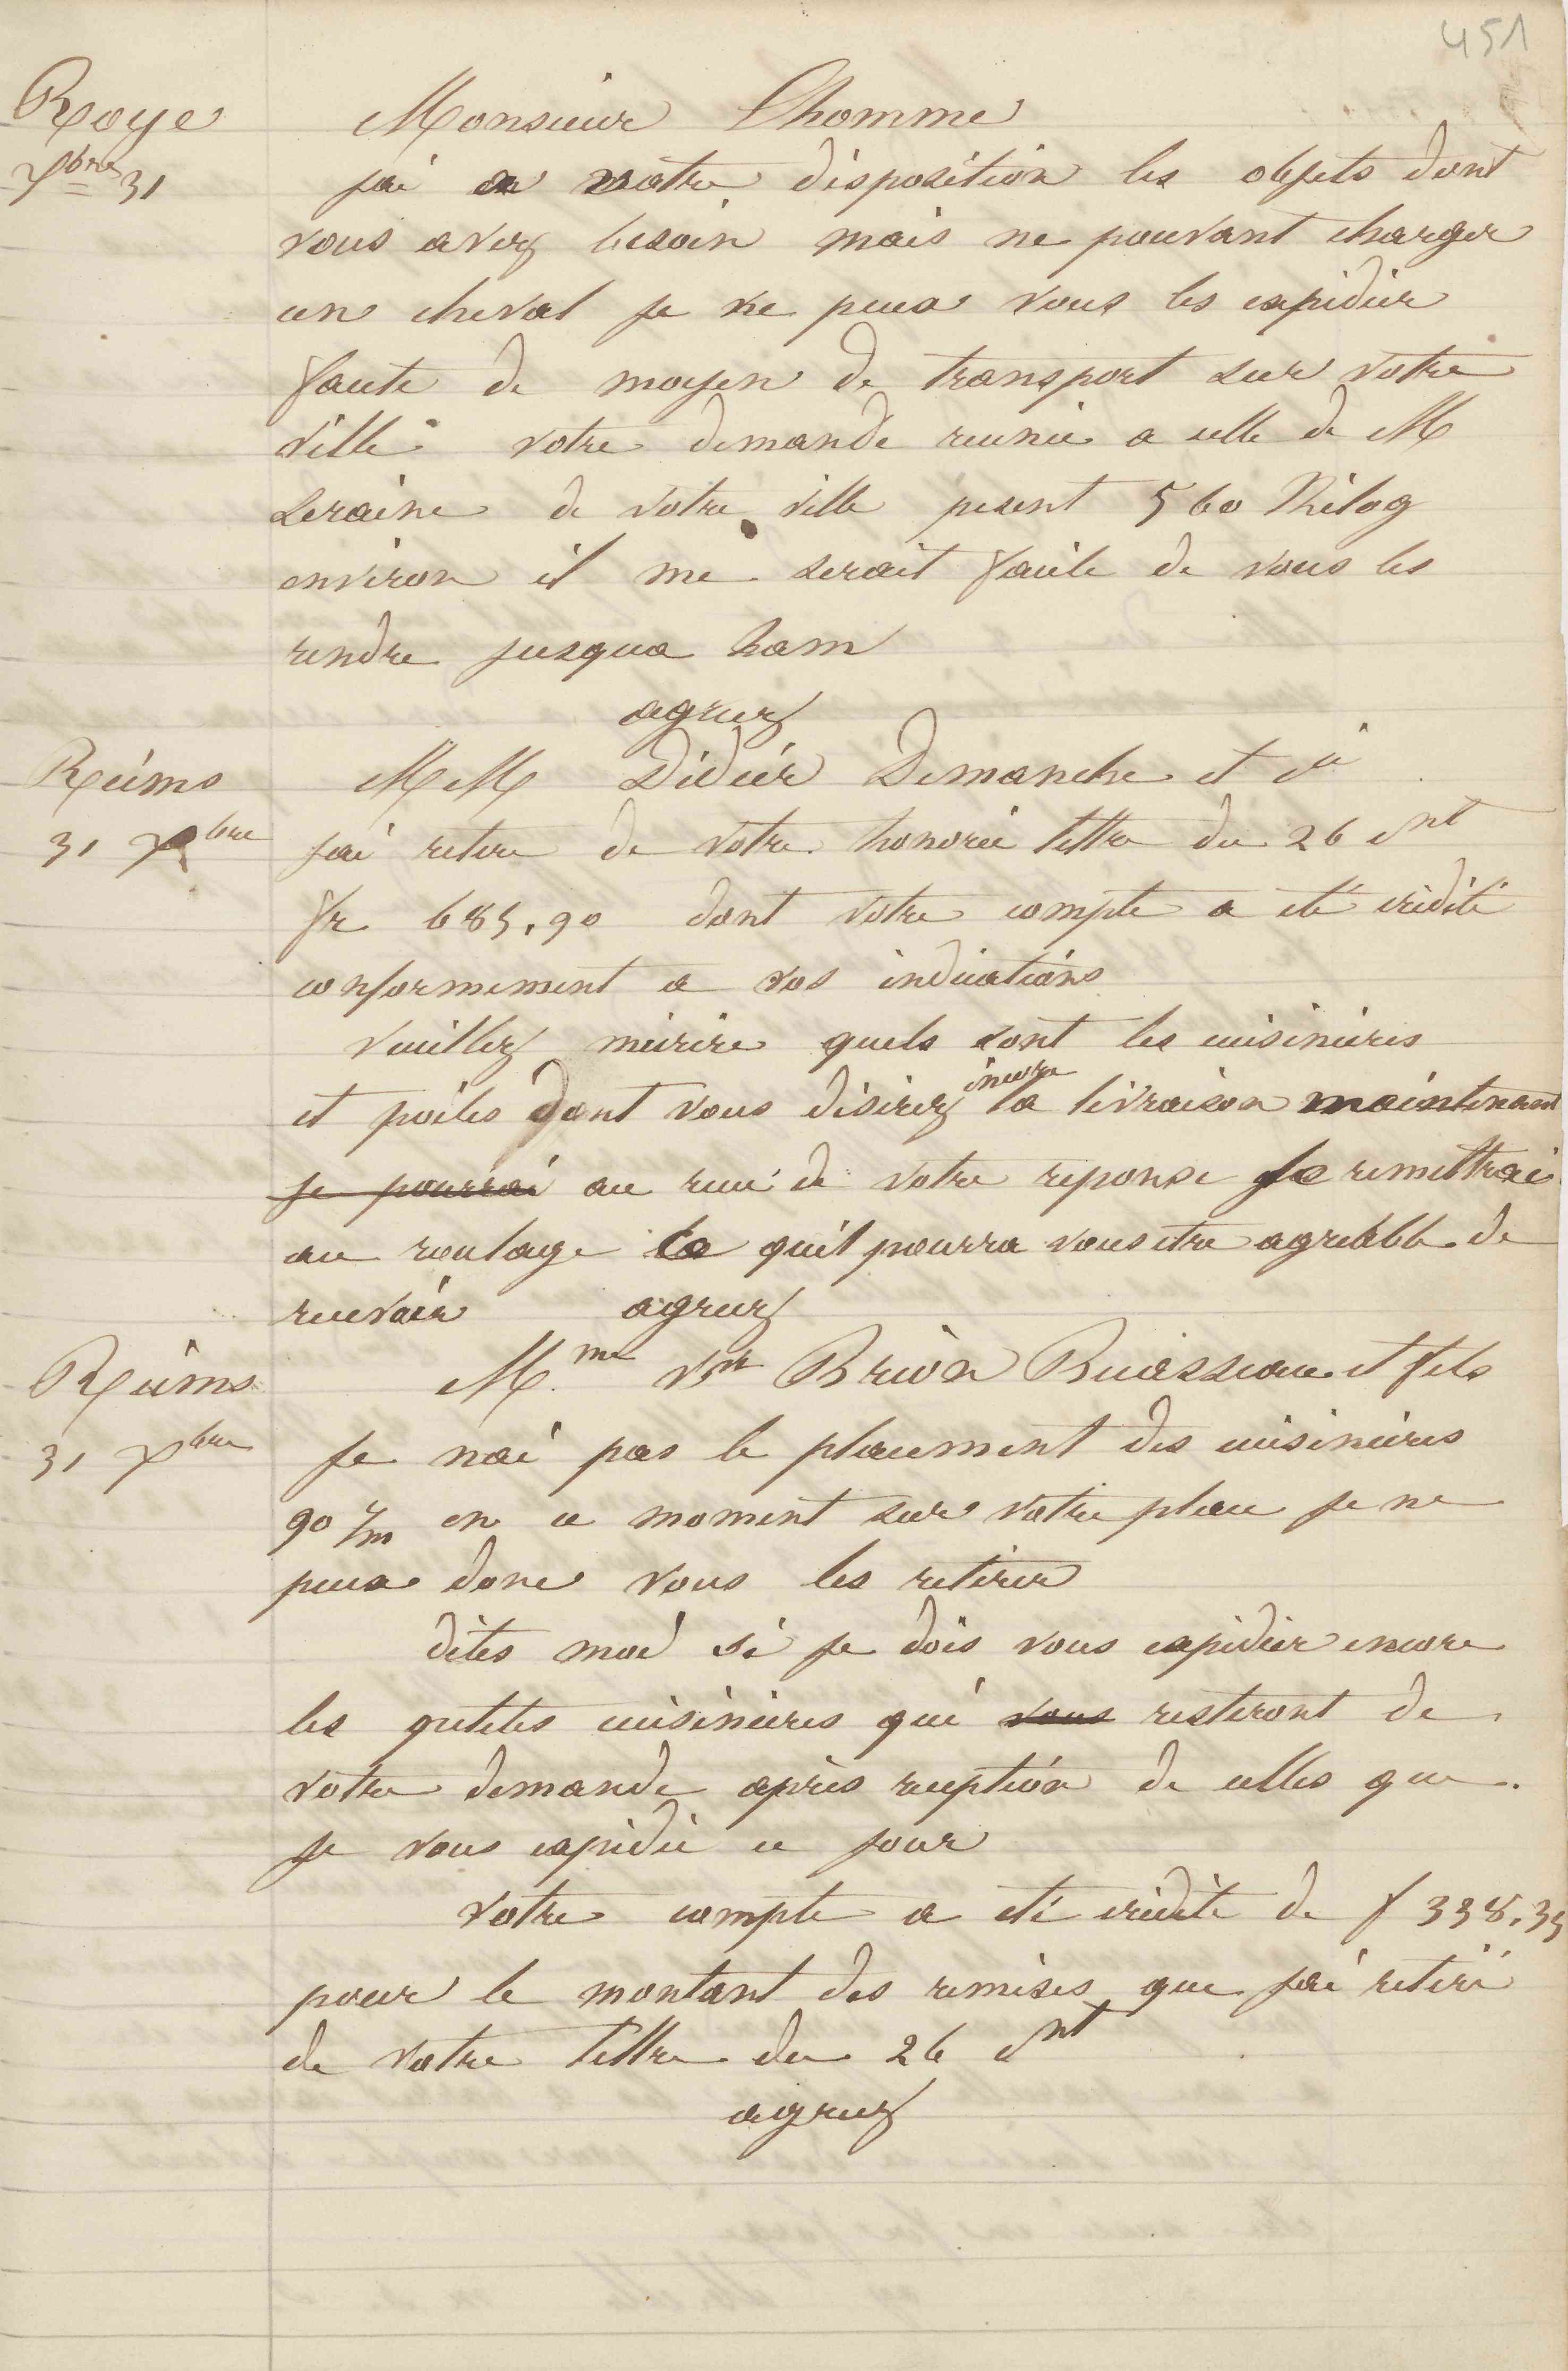 451
Roye
Xbre 31
Monsieur Lhomme
jai a votre disposition les objets dont
vous avez besoin mais ne pouvant charger
un cheval je ne peux vous les expedier
faute de moyen de transport sur votre
ville votre demande reunie a celle de M
Leraine de votre ville pesent 560 Kilog
environ il me serait facile de vous les
rendre jusqua ham
agreez
Reims
31 Xbre
MM Didier Demanche et Cie
jai retire de votre honorée lettre du 26 ct
fr 685,90 dont votre compte a été crédité
conformement a vos indications
veuillez mécrire quels sont les cuisinieres
et poëles dont vous désirez encore la livraison maintenant
je pourrai au recu de votre reponse je remettrai
au roulage ce quil pourra vous etre agreable de
recevoir agreez
Reims
31 Xbre
Mme Vve Brion Buasseau et fils
Je nai pas le placement des cuisinieres
90 c/m en ce moment sur votre place je ne
peux donc vous les retirer
dites moi si je dois vous expédier encore
les petites cuisinieres qui vous resteront de
votre demande après reception de celles que
je vous expédie ce jour
votre compte a été crédité de f 338,35
pour le montant des remises que jai retiré
de votre lettre du 26 ct
agreez